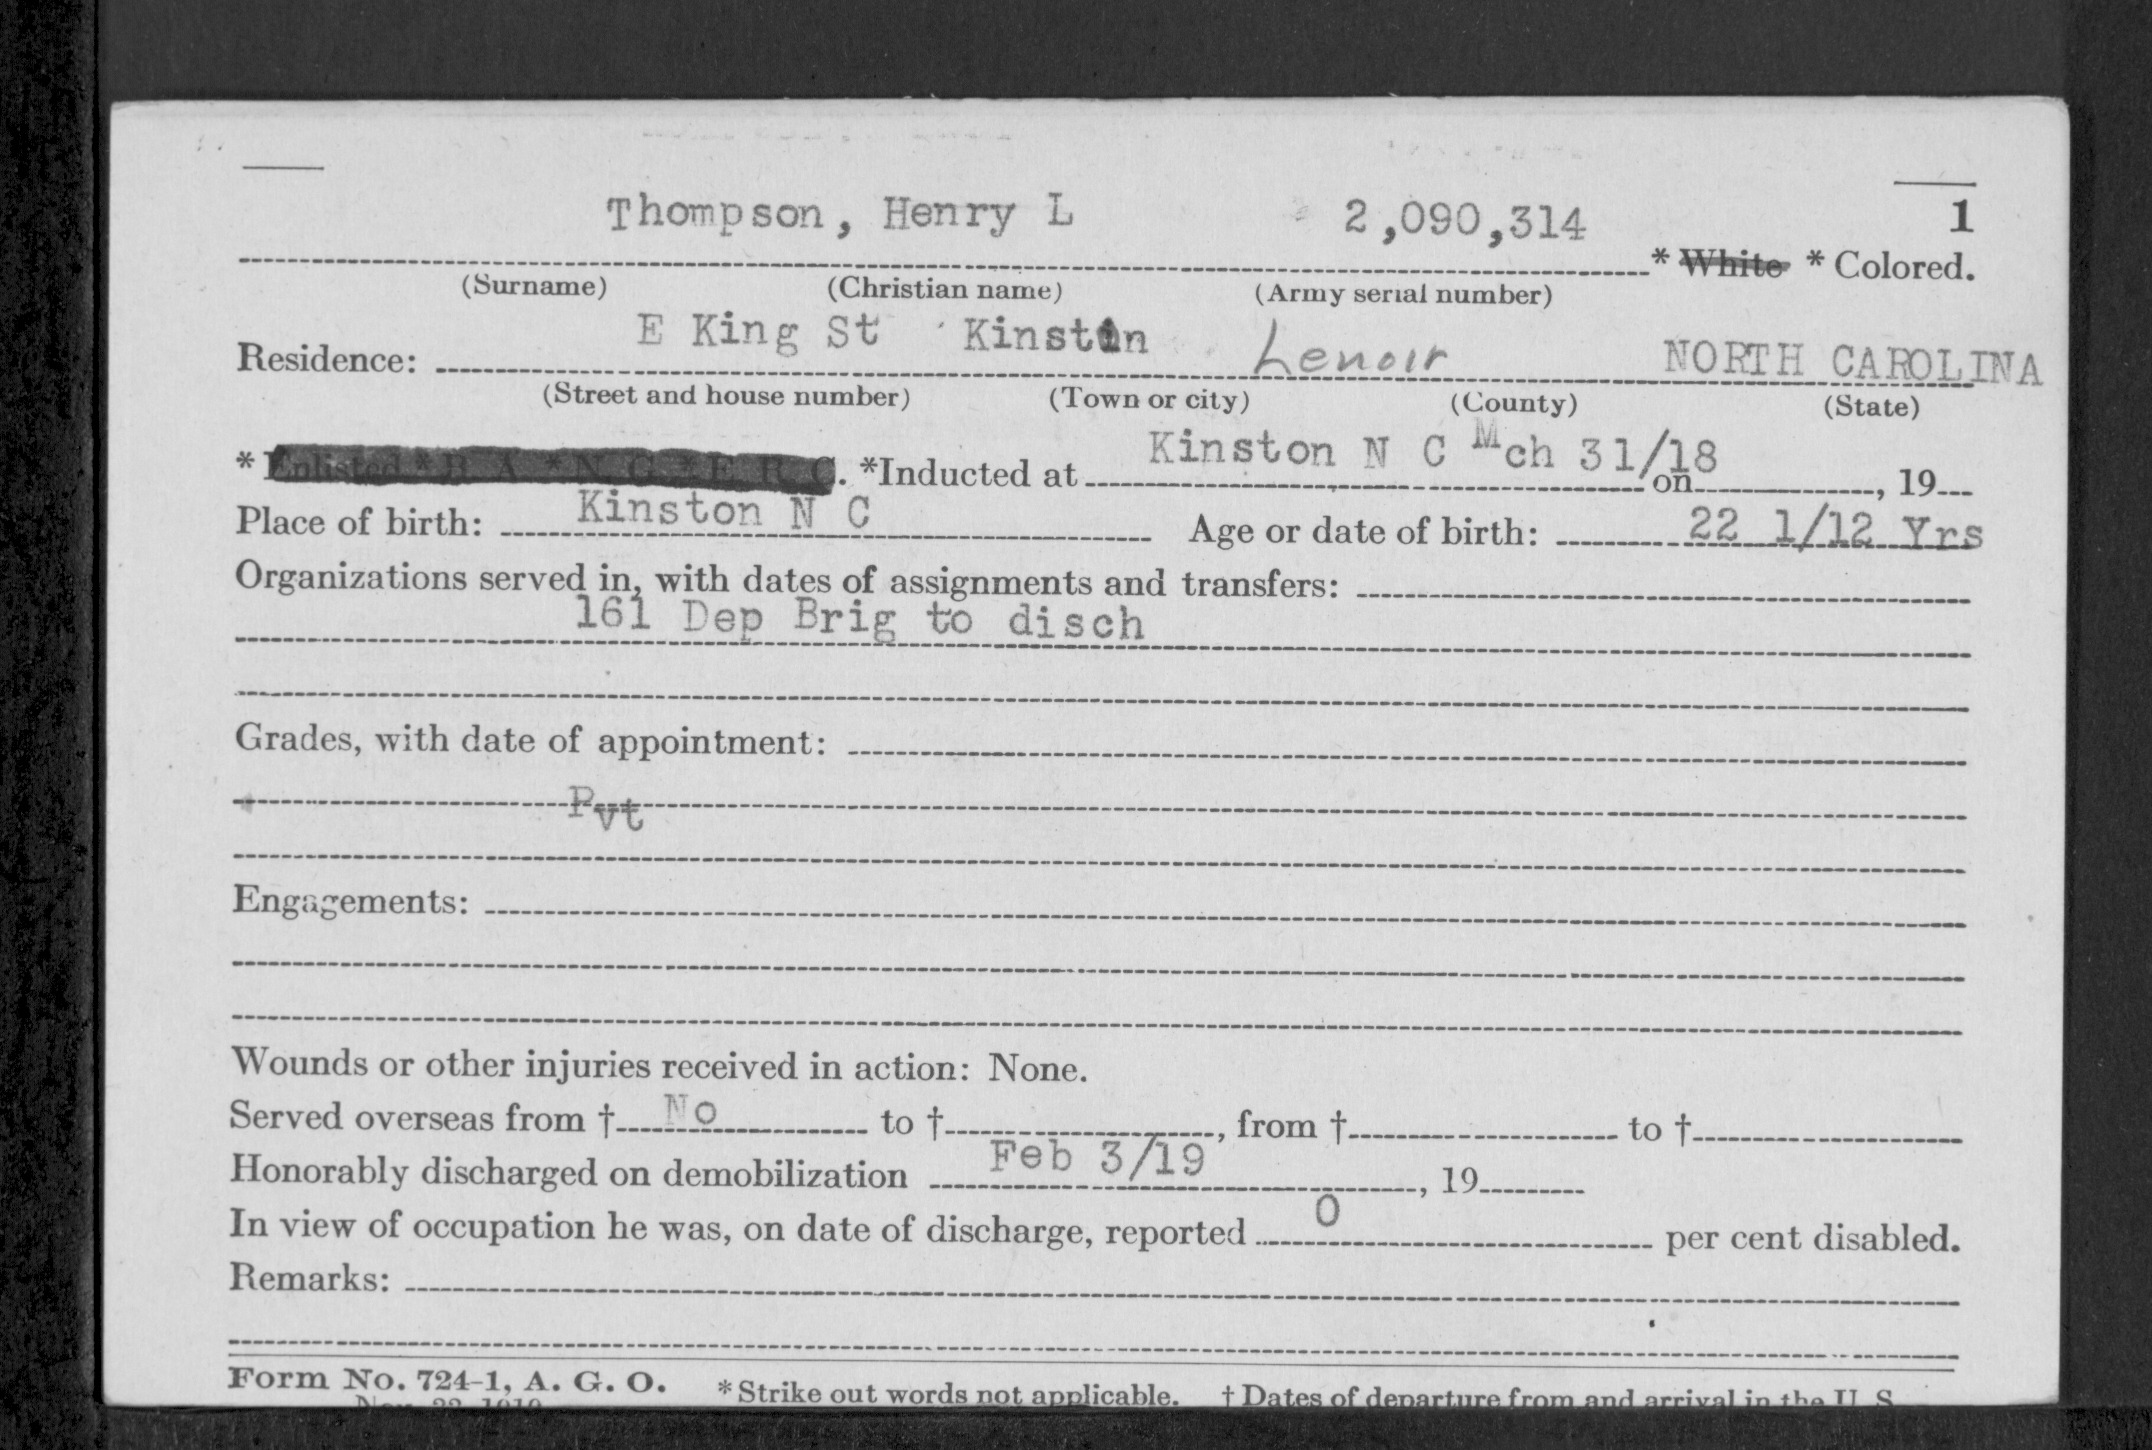 Thompson, Henry L 2,090,314 1
* White * Colored.
(Surname) (Christian name) (Army serial number)
Residence: E King St Kinston Lenoir NORTH CAROLINA
(Street and house number) (Town or city) (County) (State)
* Enlisted * R. A. * N. G. * E. R. C. *Inducted at Kinston N C Mch 31/18 on , 19
Place of birth: Kinston N C Age or date of birth: 22 1/12 Yrs
Organizations served in, with dates of assignments and transfers:
161 Dep Brig to disch
Grades, with date of appointment:
Pvt
Engagements:
Wounds or other injuries received in action: None.
Served overseas from † No to † , from † to †
Honorably discharged on demobilization Feb 3/19 , 19
In view of occupation he was, on date of discharge, reported 0 per cent disabled.
Remarks:
Form No. 724-1, A. G. O. * Strike out words not applicable. † Dates of departure from and arrival in the U S